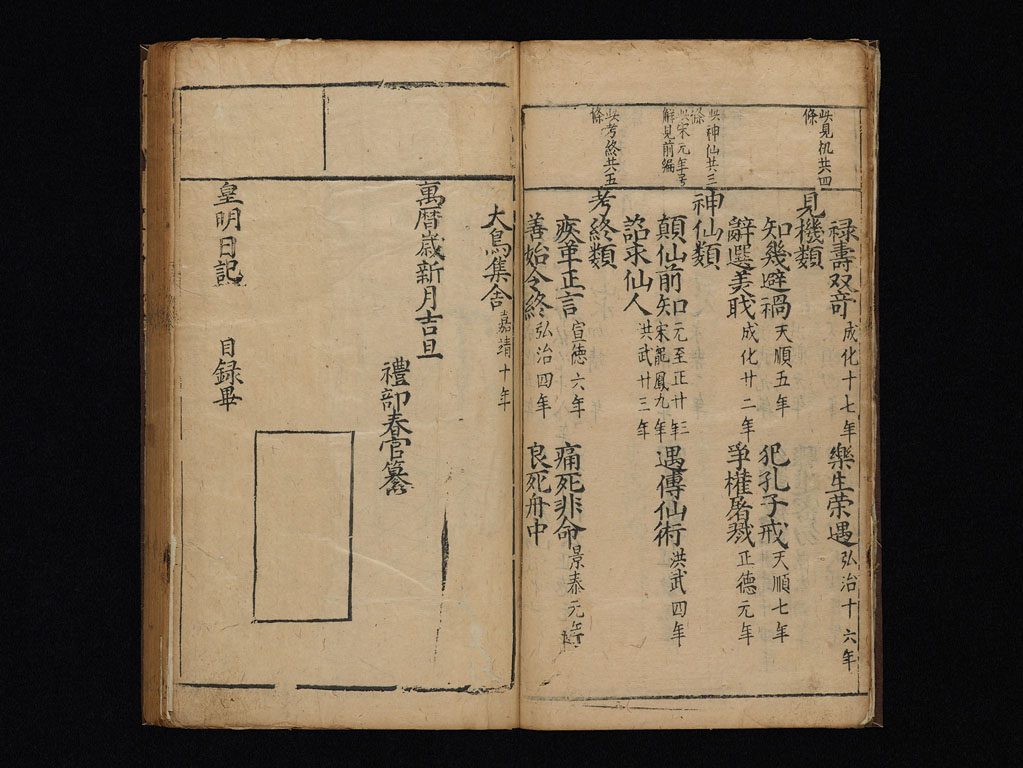 祿壽双竒 成化十七年 樂生荣遇 弘治十六年
此見机共四條
見機類
知幾避禍 天順五年 犯孔子戒 天順七年
辭選美戝 成化廿二年 爭權屠戮 正德元年
此神仙共三條
神仙類
此宋元年号解見前編
顛仙前知 元至正廿三年 宋龍鳳九年 遇傳仙術 洪武四年
詔求仙人 洪武廿三年
此考終共五條
考終類
疾革正言 宣德六年 痛死非命 景泰元年
善始令終 弘治四年 良死舟中
大鳥集舍 嘉靖十年
萬曆歲新月吉旦
禮部春官纂
皇明日記 目録畢